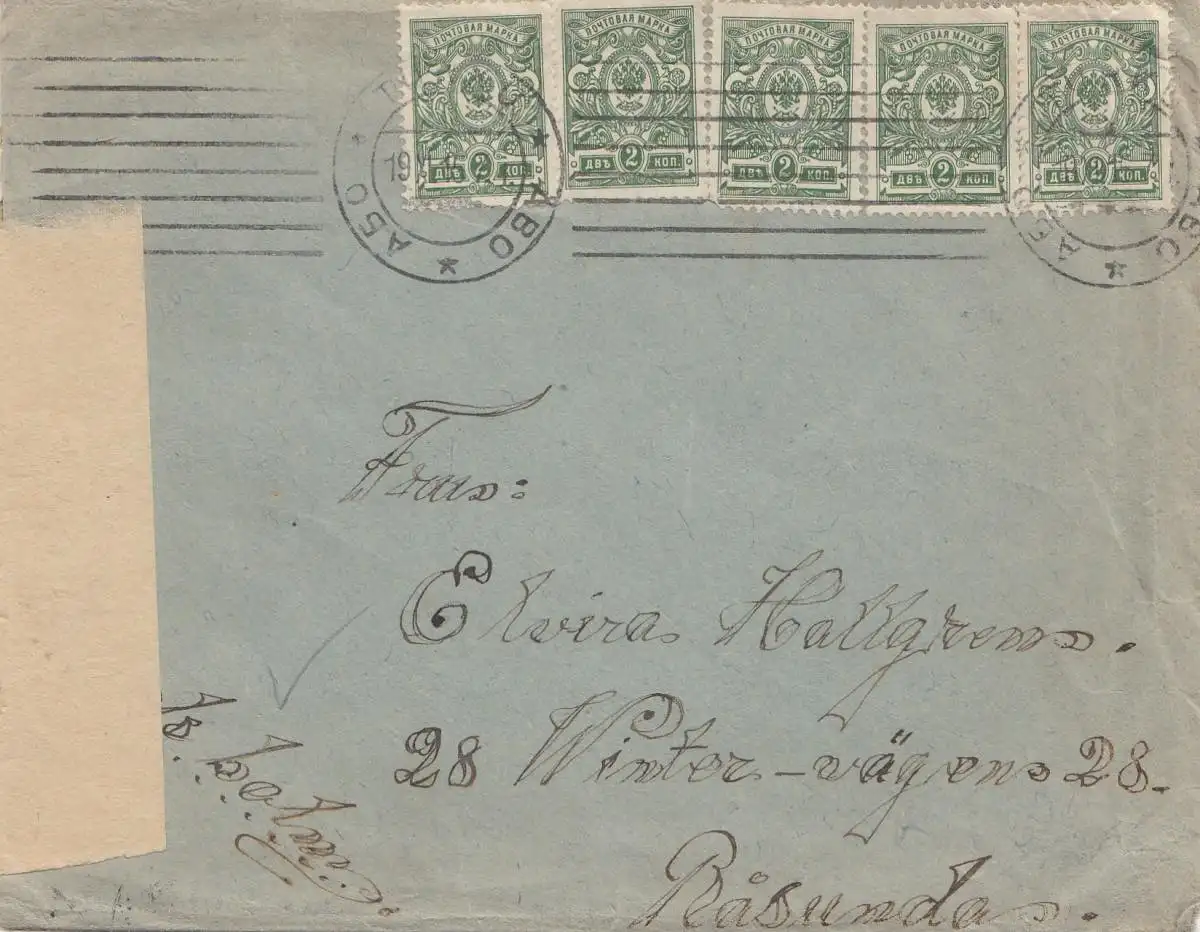 ПОЧТОВАЯ МАРКА ПОЧТОВАЯ МАРКА ПОЧТОВАЯ МАРКА ПОЧТОВАЯ МАРКА ПОЧТОВАЯ МАРКА
ДВѢ 2 КОП. ДВѢ 2 КОП. ДВѢ 2 КОП. ДВѢ 2 КОП. ДВѢ 2 КОП.
АБО * ABO
АБО * ABO
Frau:
Elvira Hallgren.
28 Winter-vägen 28.
Råsunda.